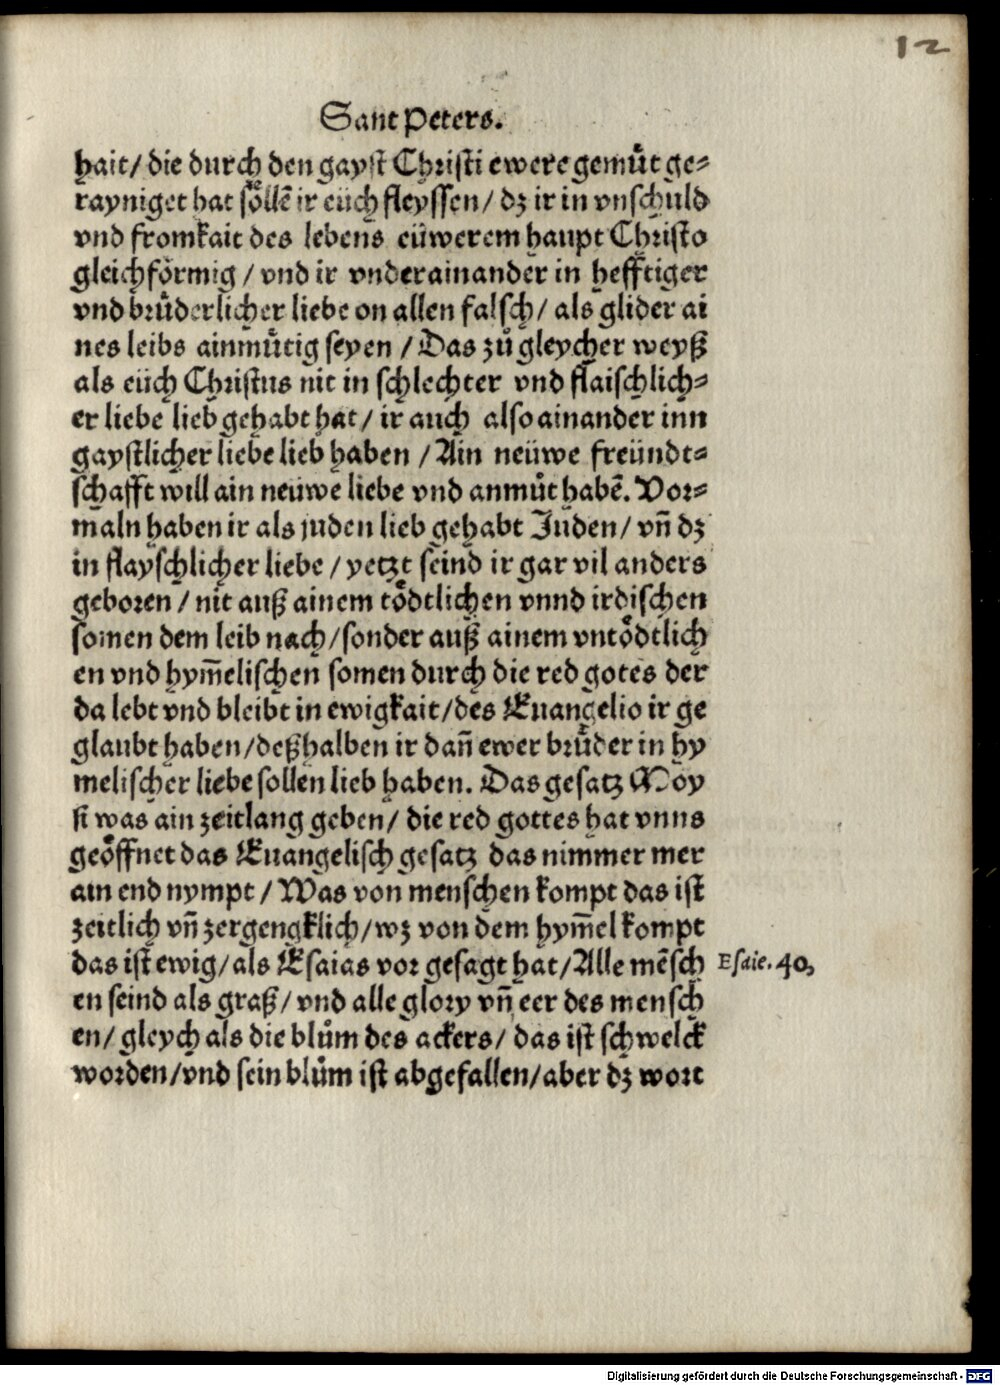 12
Sant Peters.
hait/ die durch den gayst Christi ewere gemuͤt ge⸗
rayniget hat soͤllẽ ir eüch fleyssen/ dz ir in vnschuld
vnd fromkait des lebens eüwerem haupt Christo
gleichfoͤrmig / vnd ir vnderainander in hefftiger
vnd bruͤderlicher liebe on allen falsch/ als glider ai
nes leibs ainmuͤtig seyen / Das zuͦ gleycher weyß
als eüch Christus nit in schlechter vnd flaischlich⸗
er liebe lieb gehabt hat/ ir auch also ainander inn
gaystlicher liebe lieb haben / Ain neüwe freündt⸗
schafft will ain neüwe liebe vnd anmuͤt habẽ. Vor⸗
maln haben ir als juden lieb gehabt Juden/ vñ dz
in flayschlicher liebe / yetzt seind ir gar vil anders
geboren / nit auß ainem toͤdtlichen vnnd irdischen
somen dem leib nach/ sonder auß ainem vntoͤdtlich
en vnd hym̃elischen somen durch die red gotes der
da lebt vnd bleibt in ewigkait/ des Euangelio ir ge
glaubt haben/ deßhalben ir dañ ewer bruͤder in hy
melischer liebe sollen lieb haben. Das gesatz Moy
si was ain zeitlang geben/ die red gottes hat vnns
geoͤffnet das Euangelisch gesatz das nimmer mer
ain end nympt / Was von menschen kompt das ist
zeitlich vñ zergengklich/ wz von dem hym̃el kompt
das ist ewig/ als Esaias vor gesagt hat/ Alle mẽsch
en seind als graß/ vnd alle glory vñ eer des mensch
en/ gleych als die bluͦm des ackers/ das ist schwelck
worden/ vnd sein bluͦm ist abgefallen/ aber dz wort
Esaie. 40,
Digitalisierung gefördert durch die Deutsche Forschungsgemeinschaft - DFG